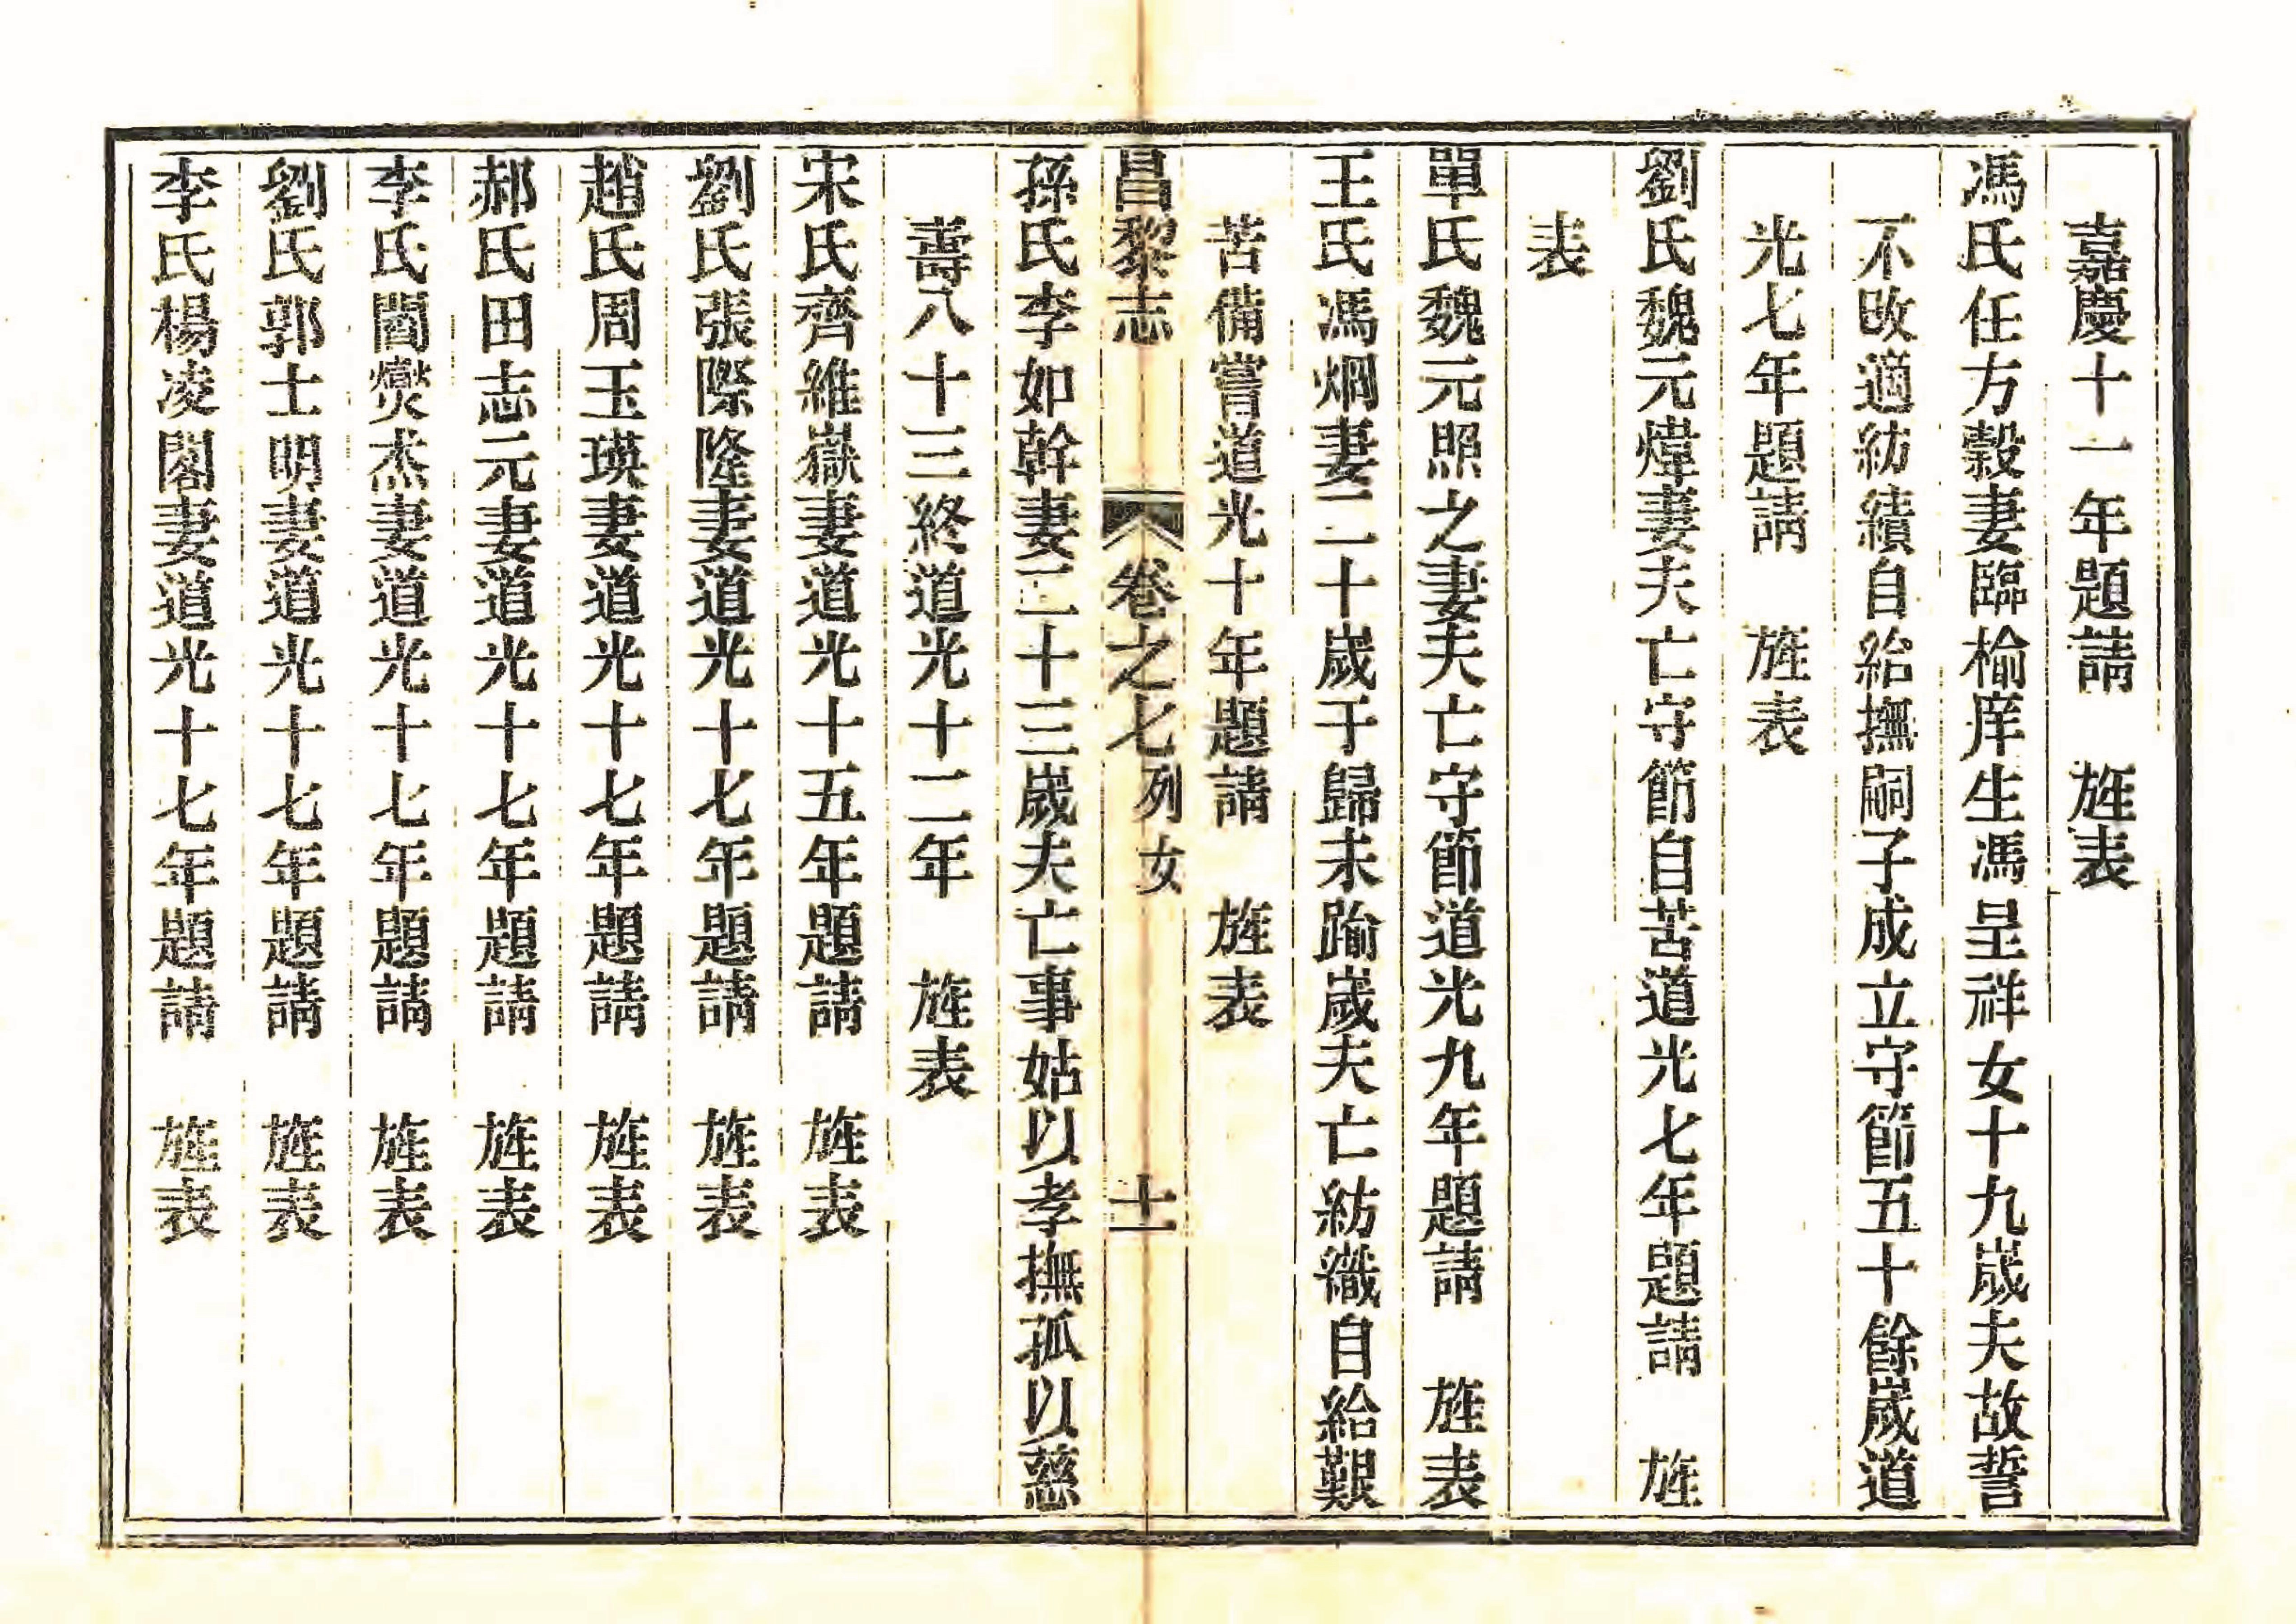 嘉慶十一年題請　旌表
馮氏任方穀妻臨榆庠生馮呈祥女十九歲夫故誓
不改適紡績自給撫嗣子成立守節五十餘歲道
光七年題請　旌表
劉氏魏元煒妻夫亡守節自苦道光七年題請　旌
表
單氏魏元照之妻夫亡守節道光九年題請　旌表
王氏馮炯妻二十歲于歸未踰歲夫亡紡織自給艱
苦備嘗道光十年題請　旌表
昌黎志　卷之七列女　十一
孫氏李如幹妻二十三歲夫亡事姑以孝撫孤以慈
壽八十三終道光十二年　旌表
宋氏齊維嶽妻道光十五年題請　旌表
劉氏張際隆妻道光十七年題請　旌表
趙氏周玉瑛妻道光十七年題請　旌表
郝氏田志元妻道光十七年題請　旌表
李氏閻爕杰妻道光十七年題請　旌表
劉氏郭士明妻道光十七年題請　旌表
李氏楊凌閣妻道光十七年題請　旌表